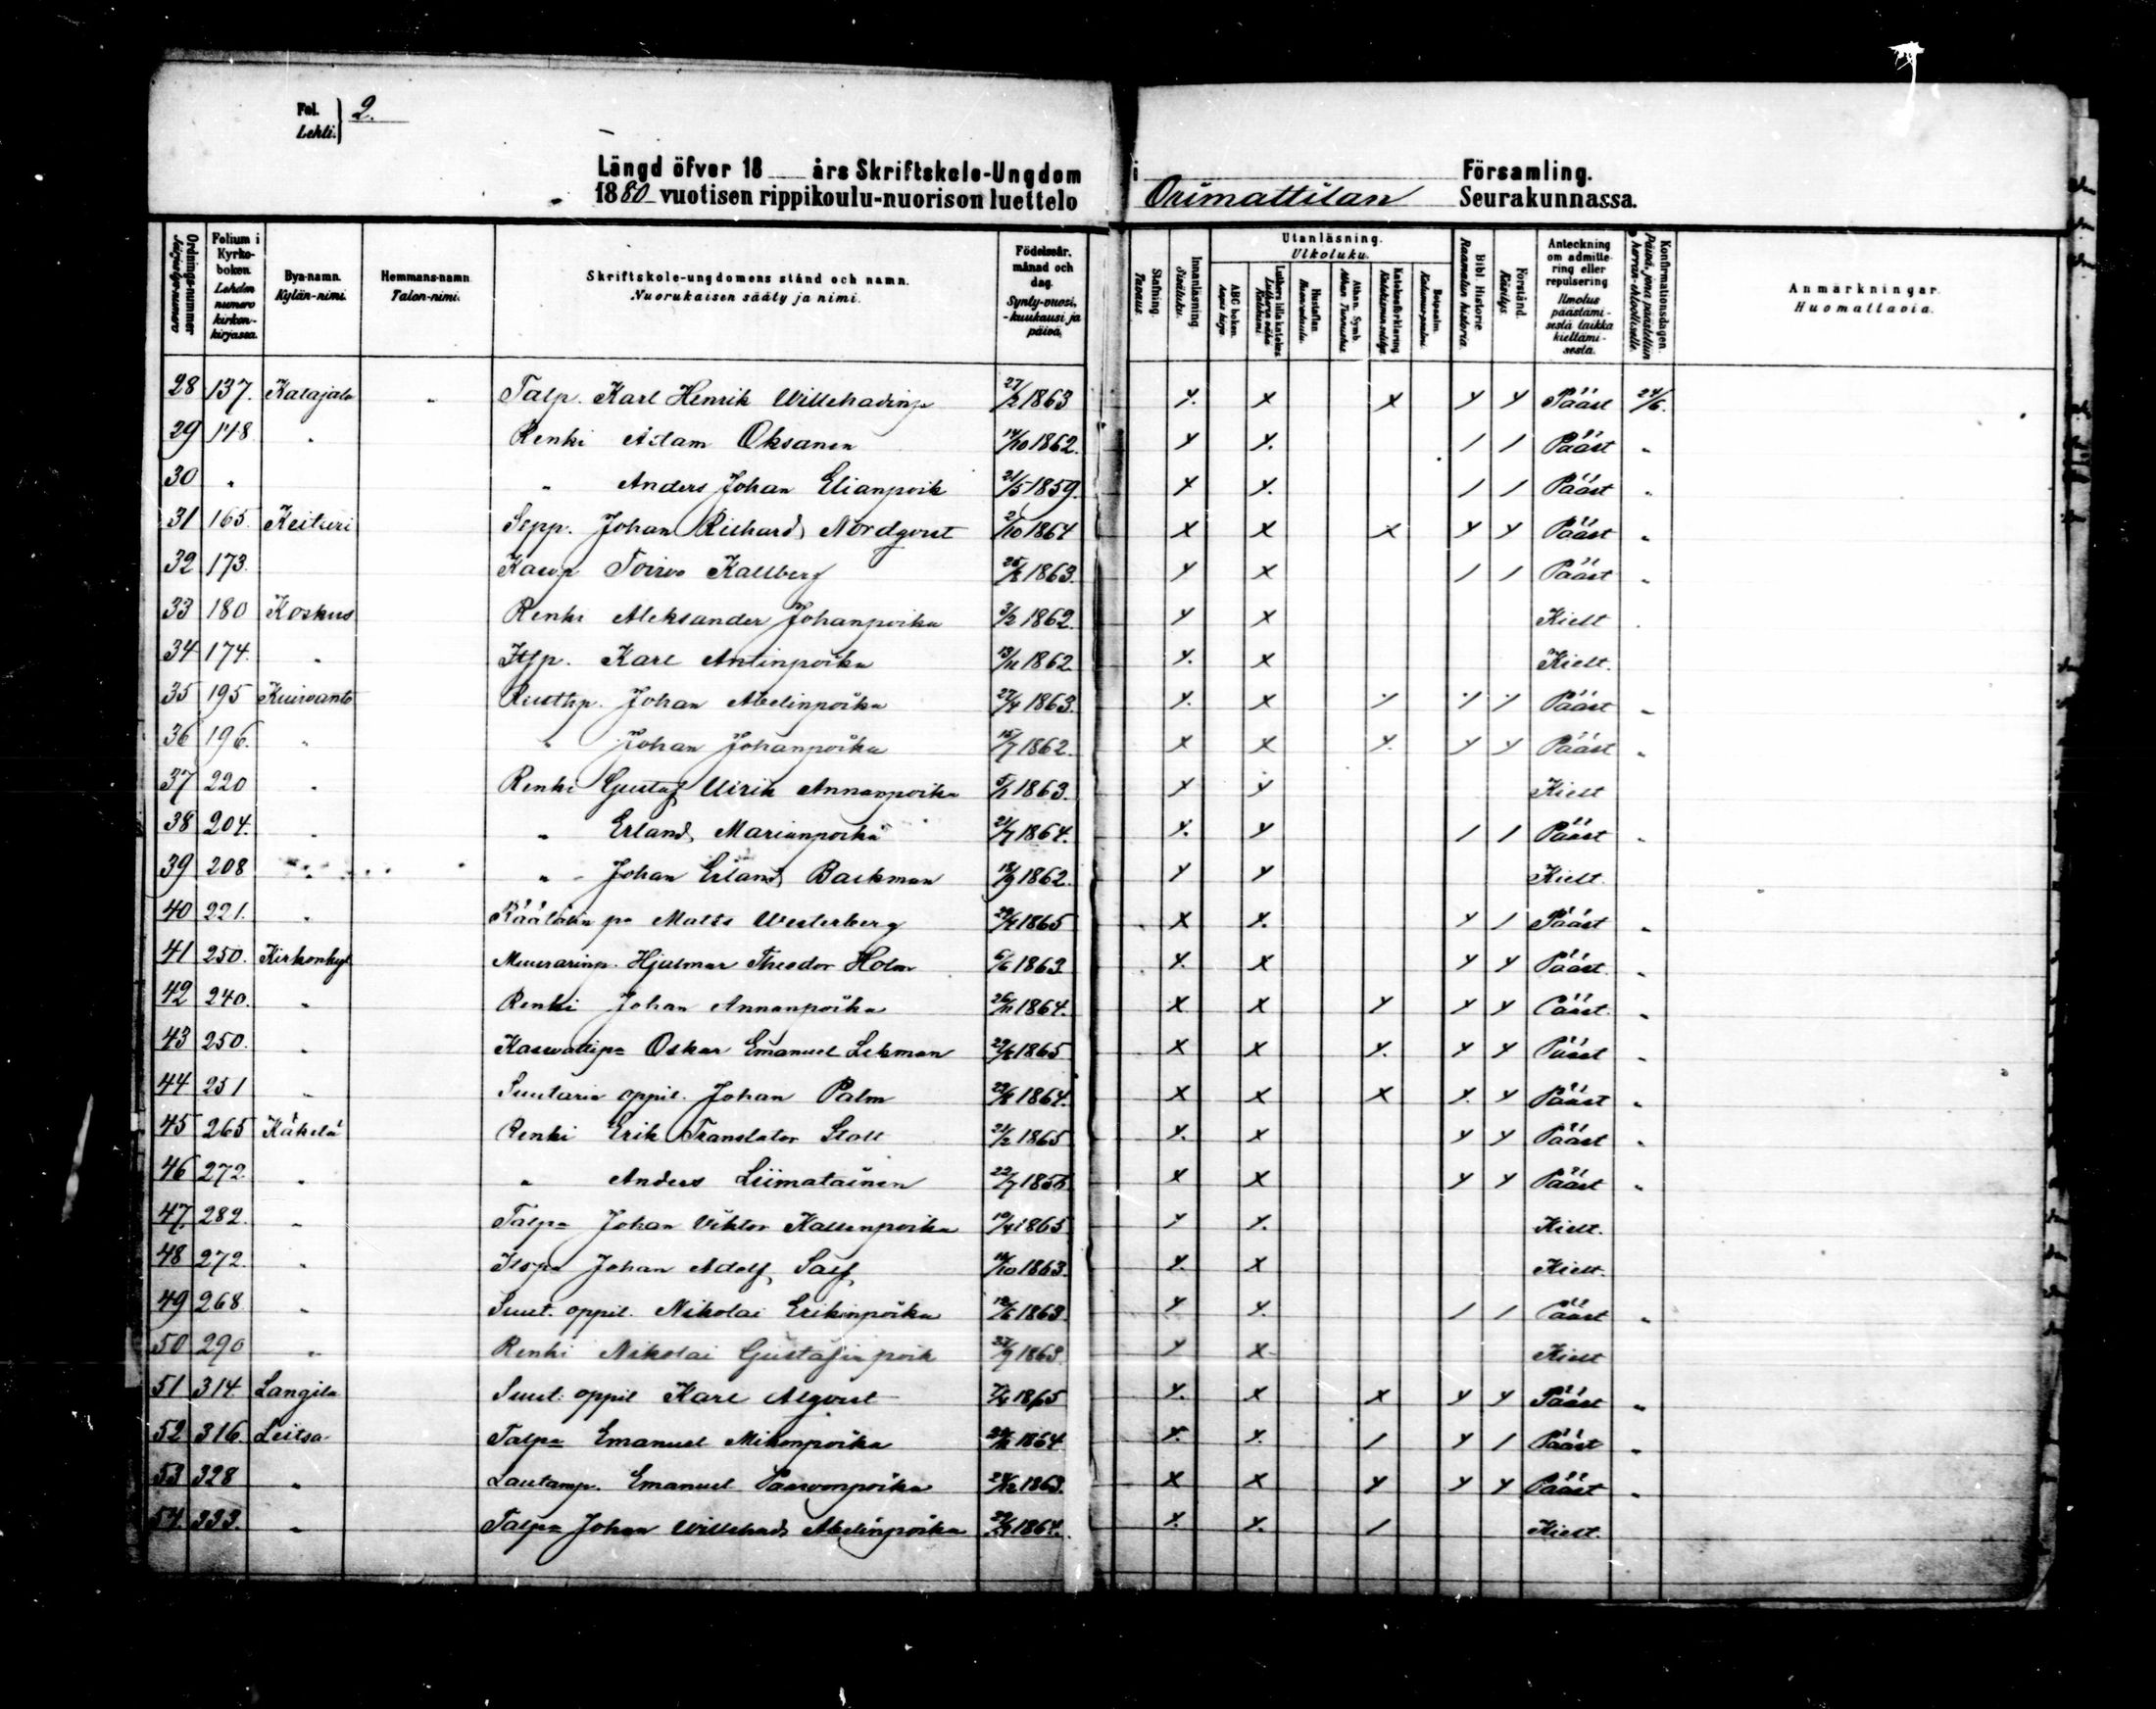 Fol. Lehti. } 2.
Längd öfver 18 års Skriftskole-Ungdom i Församling.
1880 vuotisen rippikoulu-nuorison luettelo Orimattilan Seurakunnassa.
Ordnings-nummer Järjestys-numero | Folium i Kyrko-boken. Lehden numero kirkon-kirjassa. | Bya-namn. Kylän-nimi. | Hemmans-namn. Talon-nimi. | Skriftskole-ungdomens stånd och namn. Nuorukaisen sääty ja nimi. | Födelseår, månad och dag. Synty-vuosi, -kuukausi ja päivä. | Stafning. Tavaus. | Innanläsning. Sisäluku. | Utanläsning. Ulkoluku. | ABC boken. Aapis kirja. | Luthers lilla katekes Lutherin vähä Katekismi | Hustaflan. Huoneentaulu. | Athan. Symb. Athan. Tunnustus. | Katekesförklaring Katekismus selitys | Botpsalm. Katumus-psalmi. | Bibl. Historie Raamatun historia. | Förstånd. Käsitys. | Anteckning om admitte-ring eller repulsering Ilmoitus päästämi-sestä taikka kieltämi-sestä. | Konfirmationsdagen. Päivä, jona päästettiin Herran ehtoolliselle. | Anmärkningar. Huomattavia.
28 137. Kalajala " Talp. Karl Henrik Willehadinp 27/2 1863 x x x x x Pääst 24/6.
29 148 " Renki Adam Oksanen 14/10 1862. x x. / / Pääst "
30 " " Anders Johan Elianpoik 21/5 1859. x x. / / Pääst "
31 165. Keituri Sepp. Johan Richard Nordqvist 2/10 1864 x x x x x Pääst "
32 173. Kasvp Toivo Kallberg 1863. x x / / Pääst "
33 180 Koskus Renki Aleksander Johanpoika 3/2 1862. x x Kielt
34 174. " Itsp. Karl Antinpoika 13/11 1862 x. x Kielt.
35 195 Kuivanto Rustlp. Johan Abelinpoika 22/4 1863. x. x x x x Pääst "
36 196. " " Johan Johanpoika 15/7 1862. x x x. x x Pääst "
37 220 " Renki Gustaf Ulrik Annanpoika 1863. x x Kielt
38 204. " " Erland Marianpoika 21/7 1864. x. x / / Pääst "
39 208 " " Johan Erland Backman 18/9 1862. x x Kielt.
40 221. " Räätälin pa Matts Westerberg 29/4 1865 x x. x / Pääst "
41 250. Kirkonkyl Muurarinp. Hjalmar Theodor Holm 6/6 1863 x. x x x Pääst "
42 240. " Renki Johan Annanpoika 26/11 1864. x x x x x Pääst "
43 250. " Kasvattipa Oskar Emanuel Lehman 1865 x x x. x x Pääst "
44 251 " Suutarin oppil. Johan Palm 1864. x x x x. x Pääst "
45 265 Käkelä Renki Erik Translator Stoll 21/2 1865 x. x x x Pääst "
46 272. " " Anders Liimatainen 22/7 x x x x Pääst "
47 282. " Talpa Johan Viktor Kallenpoika 1865 x x. Kielt.
48 272. " Itspa Johan Adolf Salf 1863. x. x Kielt.
49 268 " Suut. oppil. Nikolai Erikinpoika 12/6 1863. x x. / / Pääst "
50 290 " Renki Nikolai Gustafinpoik 27/9 1863 x x Kielt
51 314 Langila Suut. oppil Karl Alqvist 1865 x. x x x x Pääst "
52 316. Leitsa Talpa Emanuel Mikonpoika 1864. x. x. / x / Pääst "
53 328 " Lautamp. Emanuel Paavonpoika 1863. x x x x x Pääst "
54. 333. " Talpa Johan Willehad Abelinpoika 1864. x. x. / Kielt.